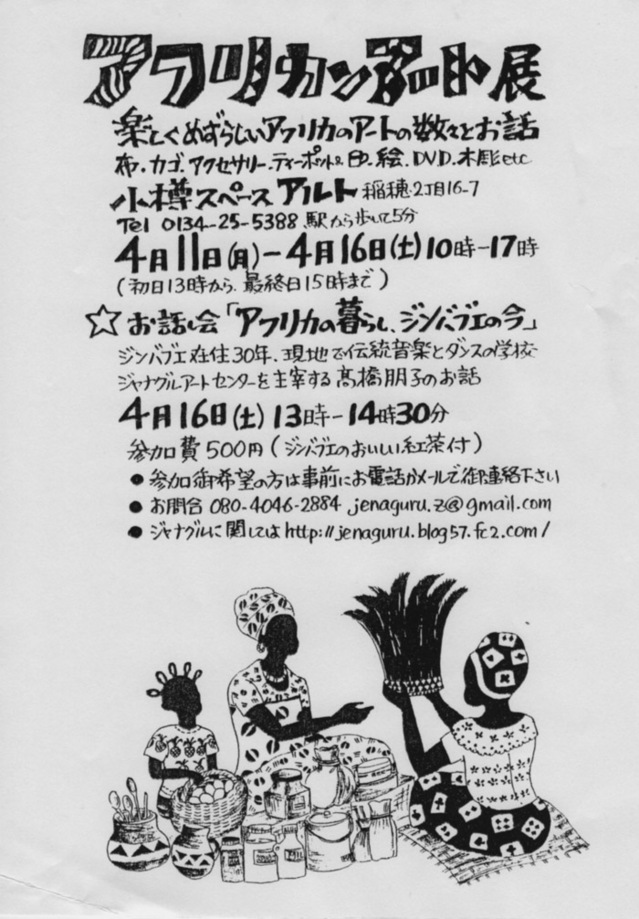 アフリカンアート展
楽しくめずらしいアフリカのアートの数々とお話
布・カゴ・アクセサリー・ティーポット・皿・絵・DVD・木彫etc
小樽スペースアルト 稲穂2丁目16-7
Tel 0134-25-5388 駅から歩いて5分
4月11日(月)-4月16日(土)10時-17時
(初日13時から、最終日15時まで)
☆お話し会「アフリカの暮らし、ジンバブエの今」
ジンバブエ在住30年、現地で伝統音楽とダンスの学校
ジャナグルアートセンターを主宰する高橋朋子のお話
4月16日(土)13時-14時30分
参加費500円(ジンバブエのおいしい紅茶付)
●参加御希望の方は事前にお電話かメールで御連絡下さい
●お問合 080-4046-2884 jenaguru.z@gmail.com
●ジャナグルに関しては http://jenaguru.blog57.fc2.com/